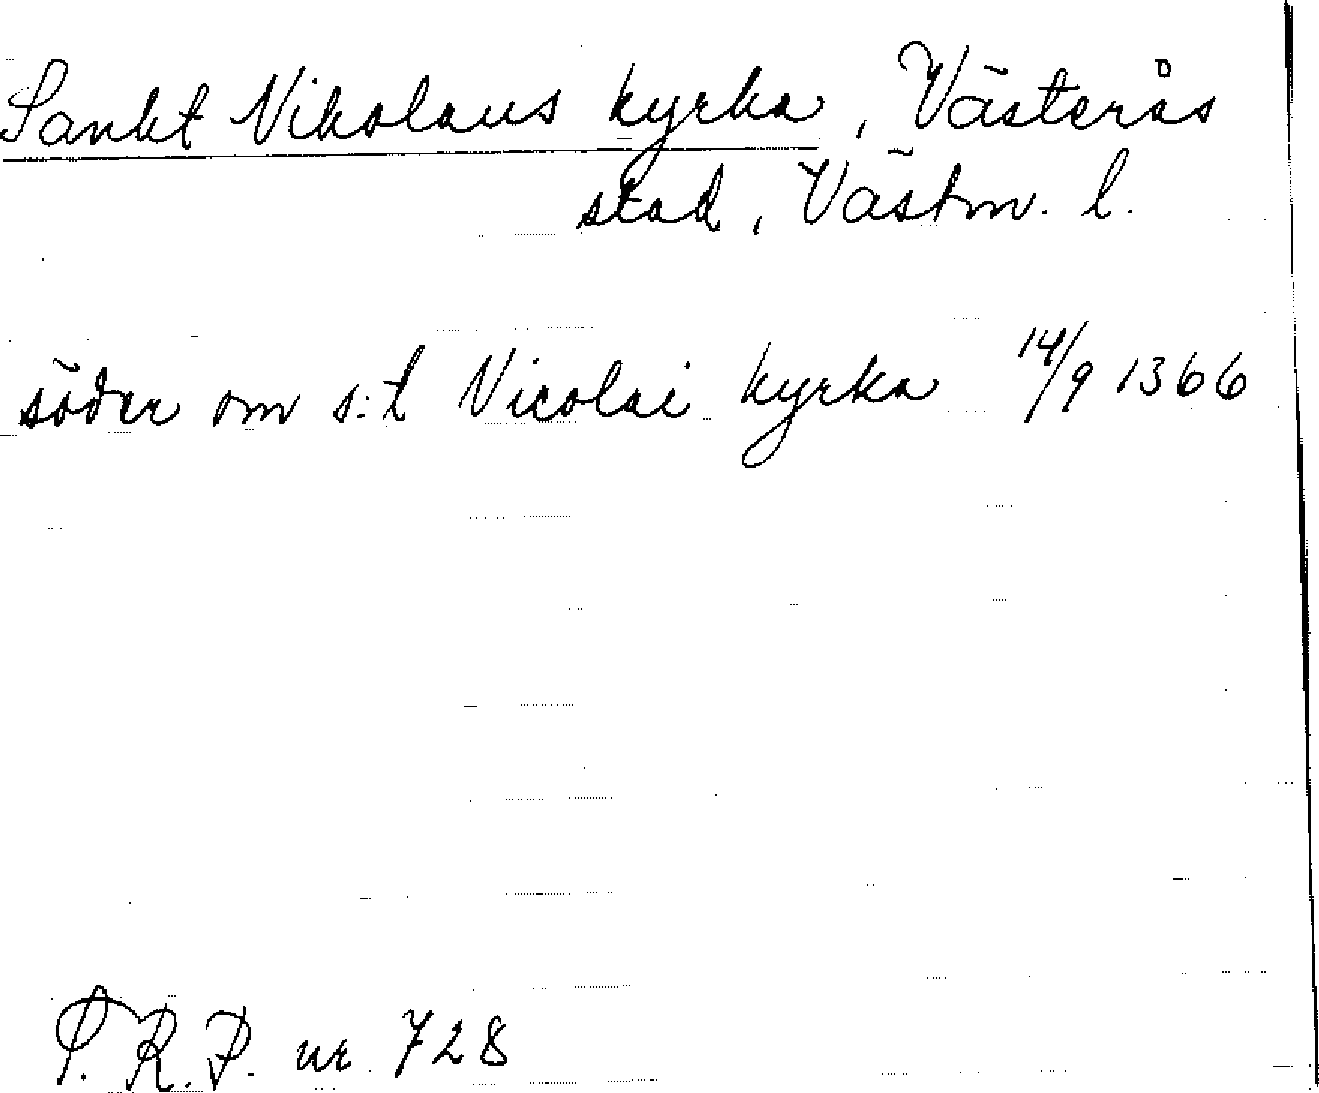 Sankt Nikolaus kyrka, Västerås
stad, Västm. l.
söder om s:t Nicolai kyrka 14/9 1366
P.R.P. nr. 728